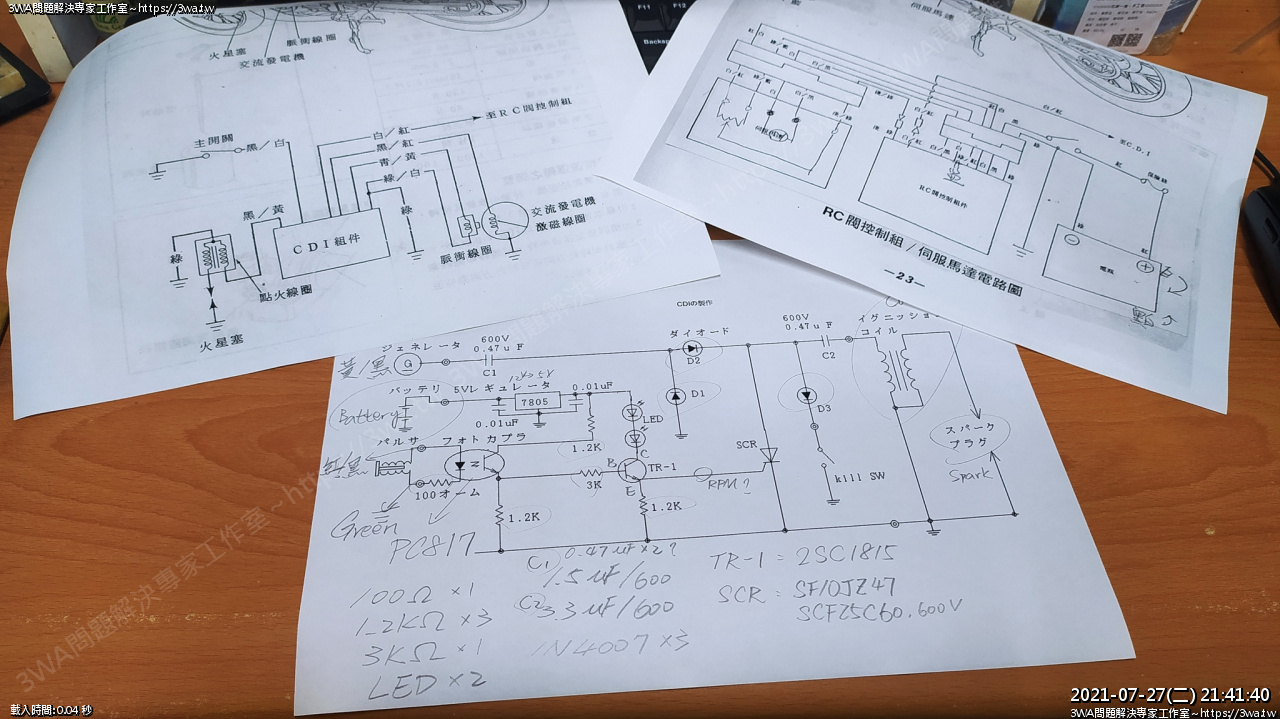 3WA問題解決專家工作室~https://3wa.tw
火星塞
脈衝線圈
交流發電機
主開關
黑／白
白／紅
至RC閥控制組
黑／紅
青／黃
綠／白
黑／黃
綠
綠
CDI組件
交流發電機
激磁線圈
脈衝線圈
點火線圈
火星塞
伺服馬達
紅
白
綠／藍
白／黑
白／紅
至C.D.I
紅
綠
RC閥控制組件
綠
紅
電瓶
RC閥控制組／伺服馬達電路圖
—23—
F11
F12
Backsp
CDIの製作
ジェネレータ
600V
0.47uF
C1
G
黃/黑
ダイオード
D2
D1
600V
0.47uF
C2
イグニッション
コイル
バッテリ
5Vレギュレータ
12V→5V
7805
0.01uF
0.01uF
Battery
LED
D3
スパーク
プラグ
Spark
パルサ
フォトカプラ
1.2K
紅/黑
100オーム
3K
B
C
E
TR-1
RPM?
SCR
kill SW
1.2K
1.2K
Green
PC817
100Ω ×1
1.2KΩ ×3
3KΩ ×1
LED ×2
C1) 0.47uF×2?
1.5uF/600
C2 3.3uF/600
1N4007×3
TR-1 = 2SC1815
SCR : SF10JZ47
SCF25C60.600V
2021-07-27(二) 21:41:40
載入時間:0.04 秒
3WA問題解決專家工作室~https://3wa.tw